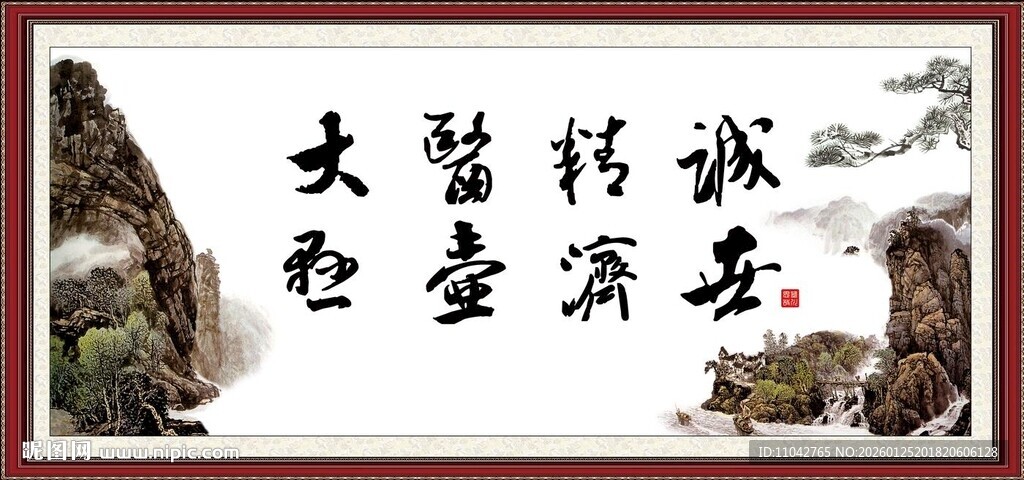 大醫精誠
懸壺濟世
昵图网 www.nipic.com
ID:11042765 NO:20260125201820606128